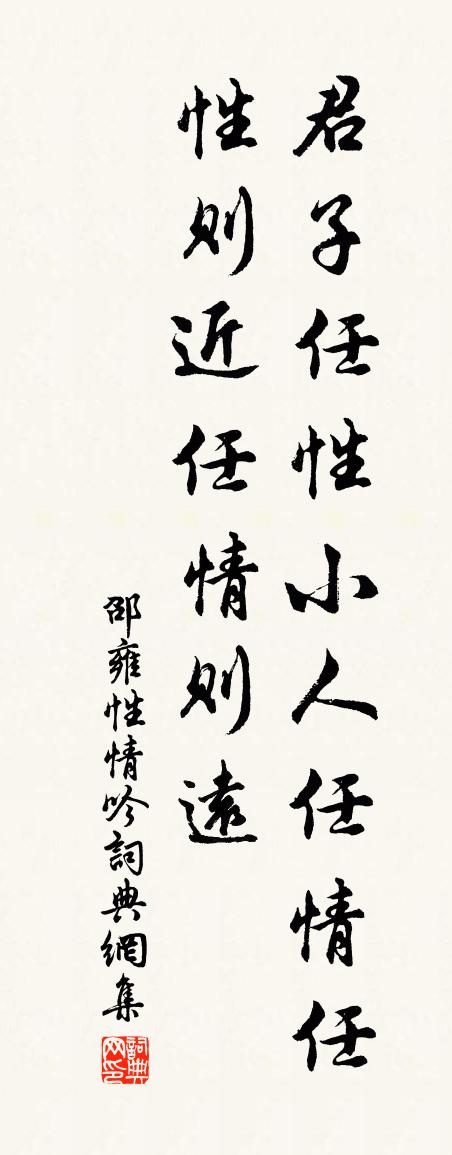 君子任性小人任情任
性則近任情則遠
邵雍性情吟詞典網集
詞典
网印